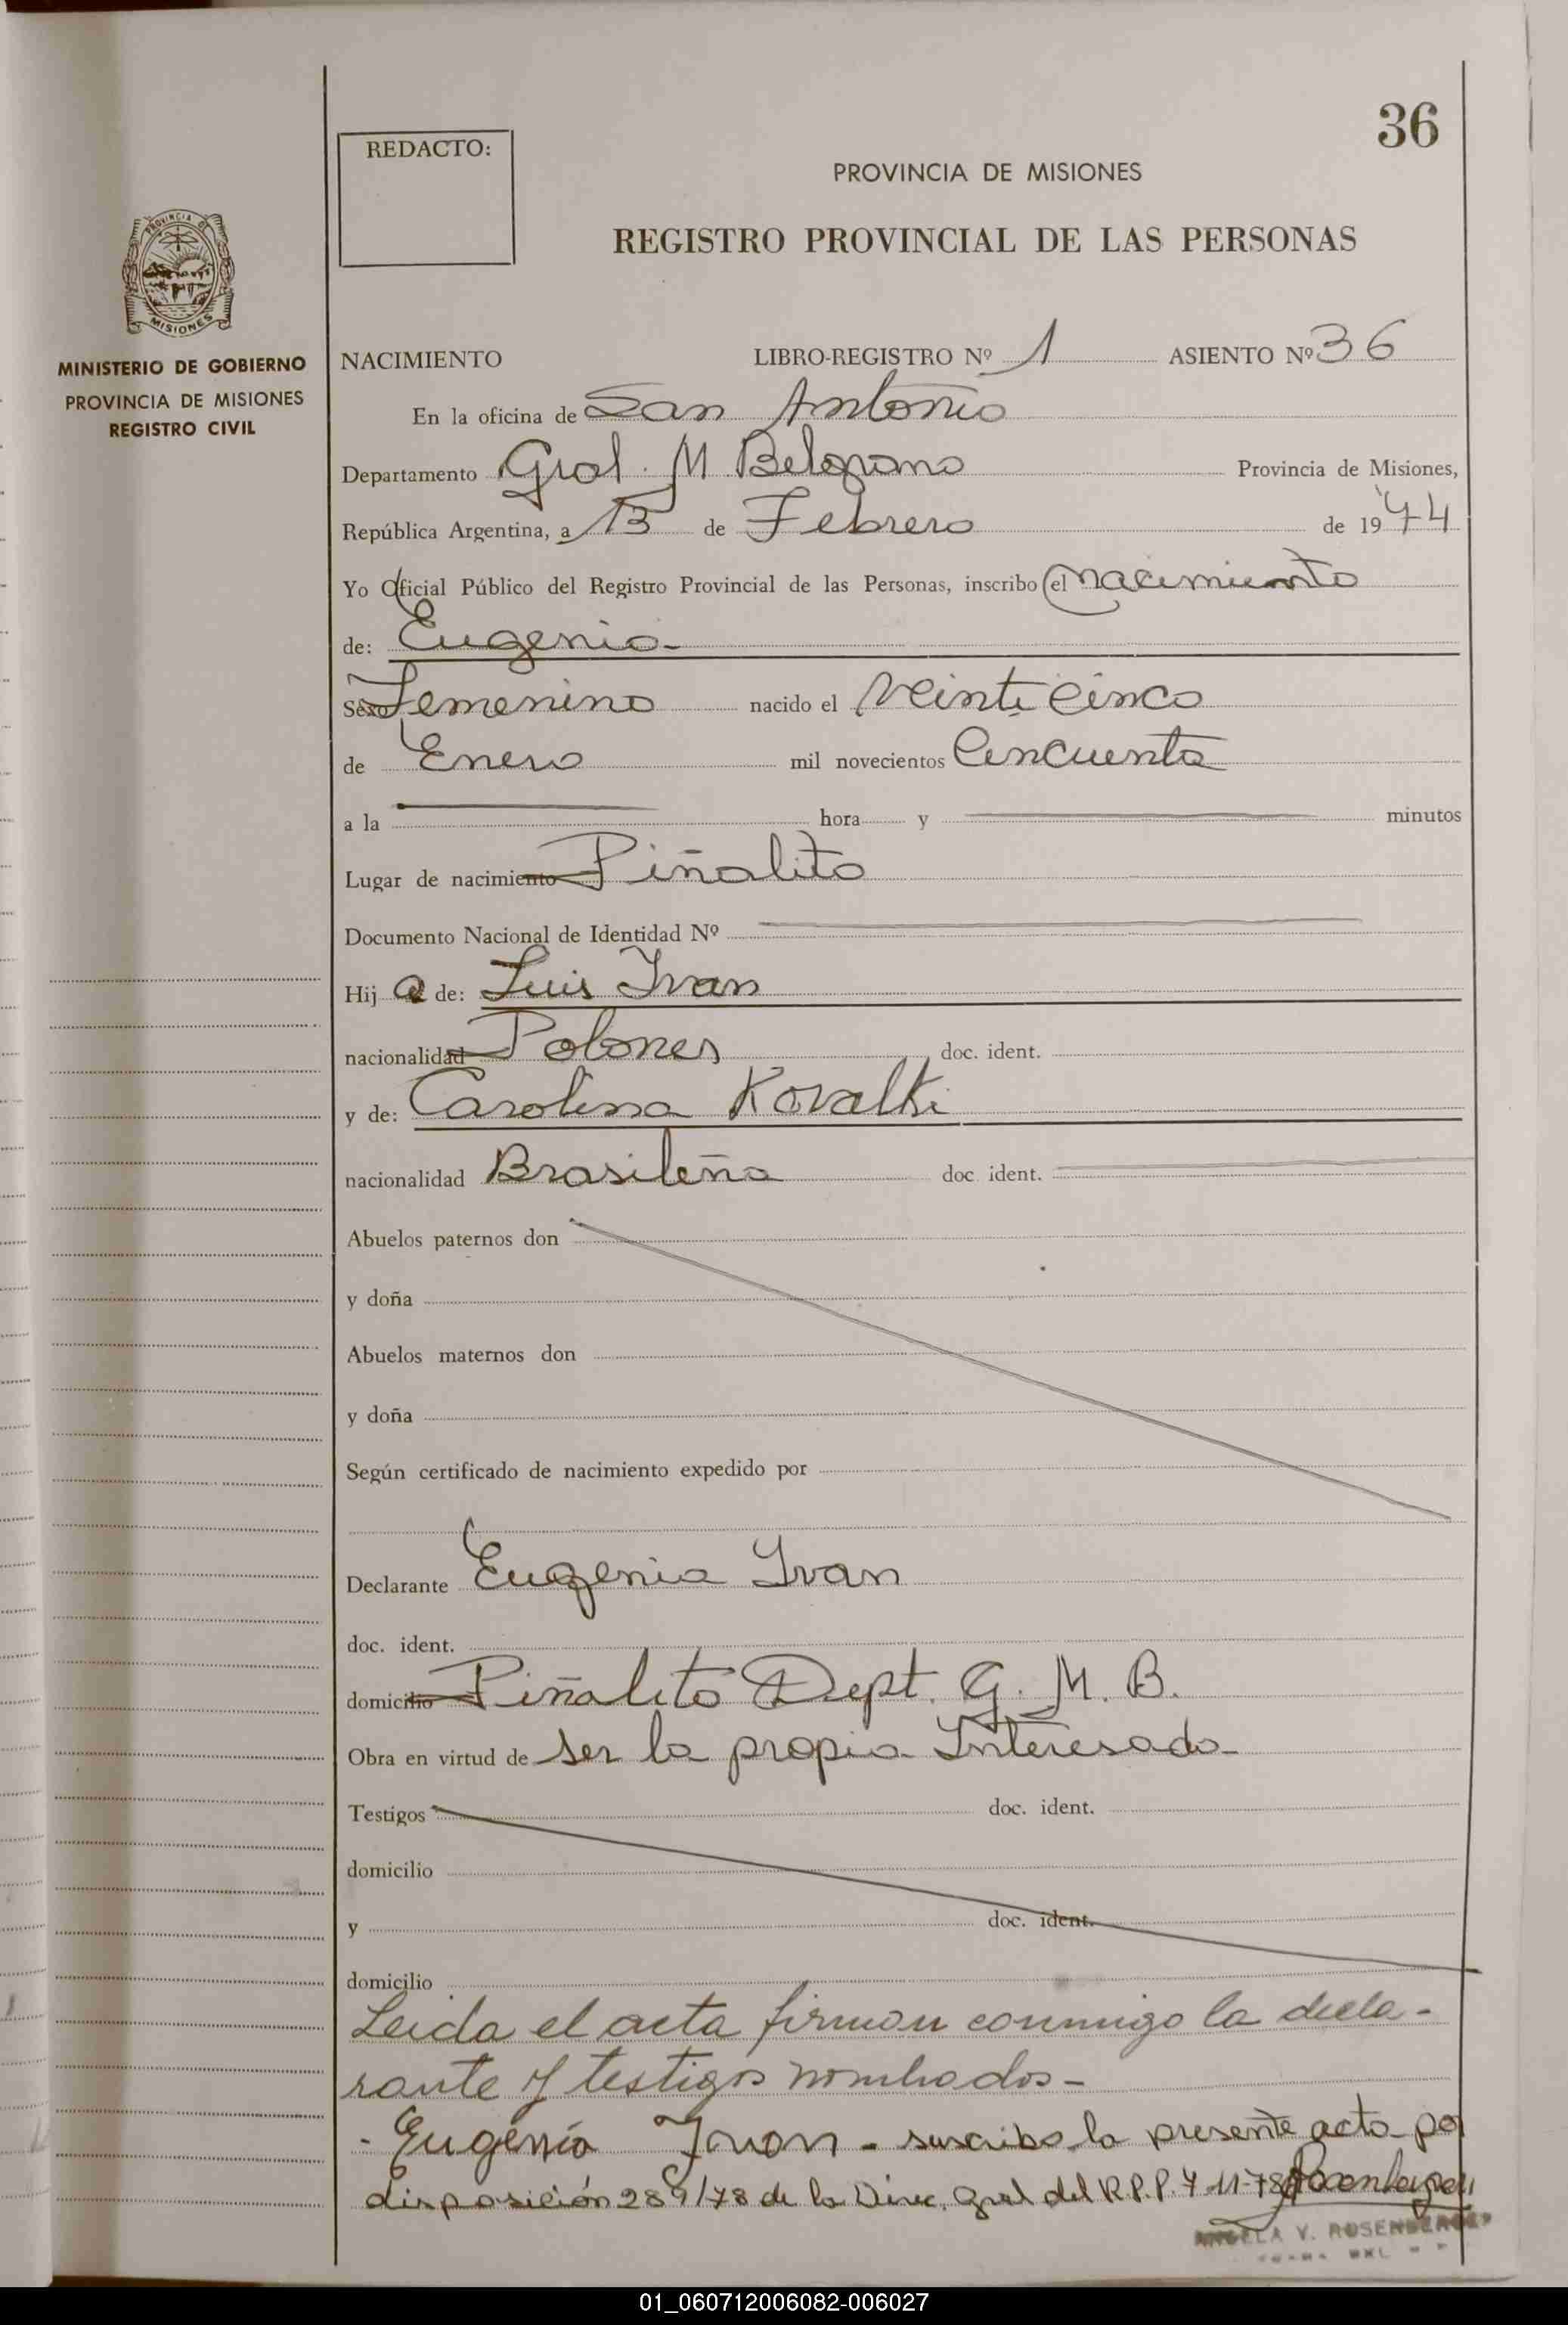 36
REDACTO:
PROVINCIA DE MISIONES
REGISTRO PROVINCIAL DE LAS PERSONAS
PROVINCIA D
MISIONES
MINISTERIO DE GOBIERNO
PROVINCIA DE MISIONES
REGISTRO CIVIL
NACIMIENTO LIBRO-REGISTRO Nº 1 ASIENTO Nº 36
En la oficina de San Antonio
Departamento Gral. M Belgrano Provincia de Misiones,
República Argentina, a 13 de Febrero de 1974
Yo Oficial Público del Registro Provincial de las Personas, inscribo el Nacimiento
de: Eugenia
Sexo Femenino nacido el Veinticinco
de Enero mil novecientos Cincuenta
a la hora y minutos
Lugar de nacimiento Piñalito
Documento Nacional de Identidad Nº
Hija de: Luis Ivan
nacionalidad Polones doc. ident.
y de: Carolina Kovalki
nacionalidad Brasileña doc. ident.
Abuelos paternos don
y doña
Abuelos maternos don
y doña
Según certificado de nacimiento expedido por
Declarante Eugenia Ivan
doc. ident.
domicilio Piñalito Dept. G. M. B.
Obra en virtud de ser la propia Interesada
Testigos doc. ident.
domicilio
y doc. ident.
domicilio
Leida el acta firman conmigo la decla-
rante y testigos nombrados-
- Eugenia Ivan - suscribo la presente acta por
disposición 289/78 de la Direc. Gral del R.P.P. 7-11-78
ANGELA V. ROSENBERGER
01_060712006082-006027